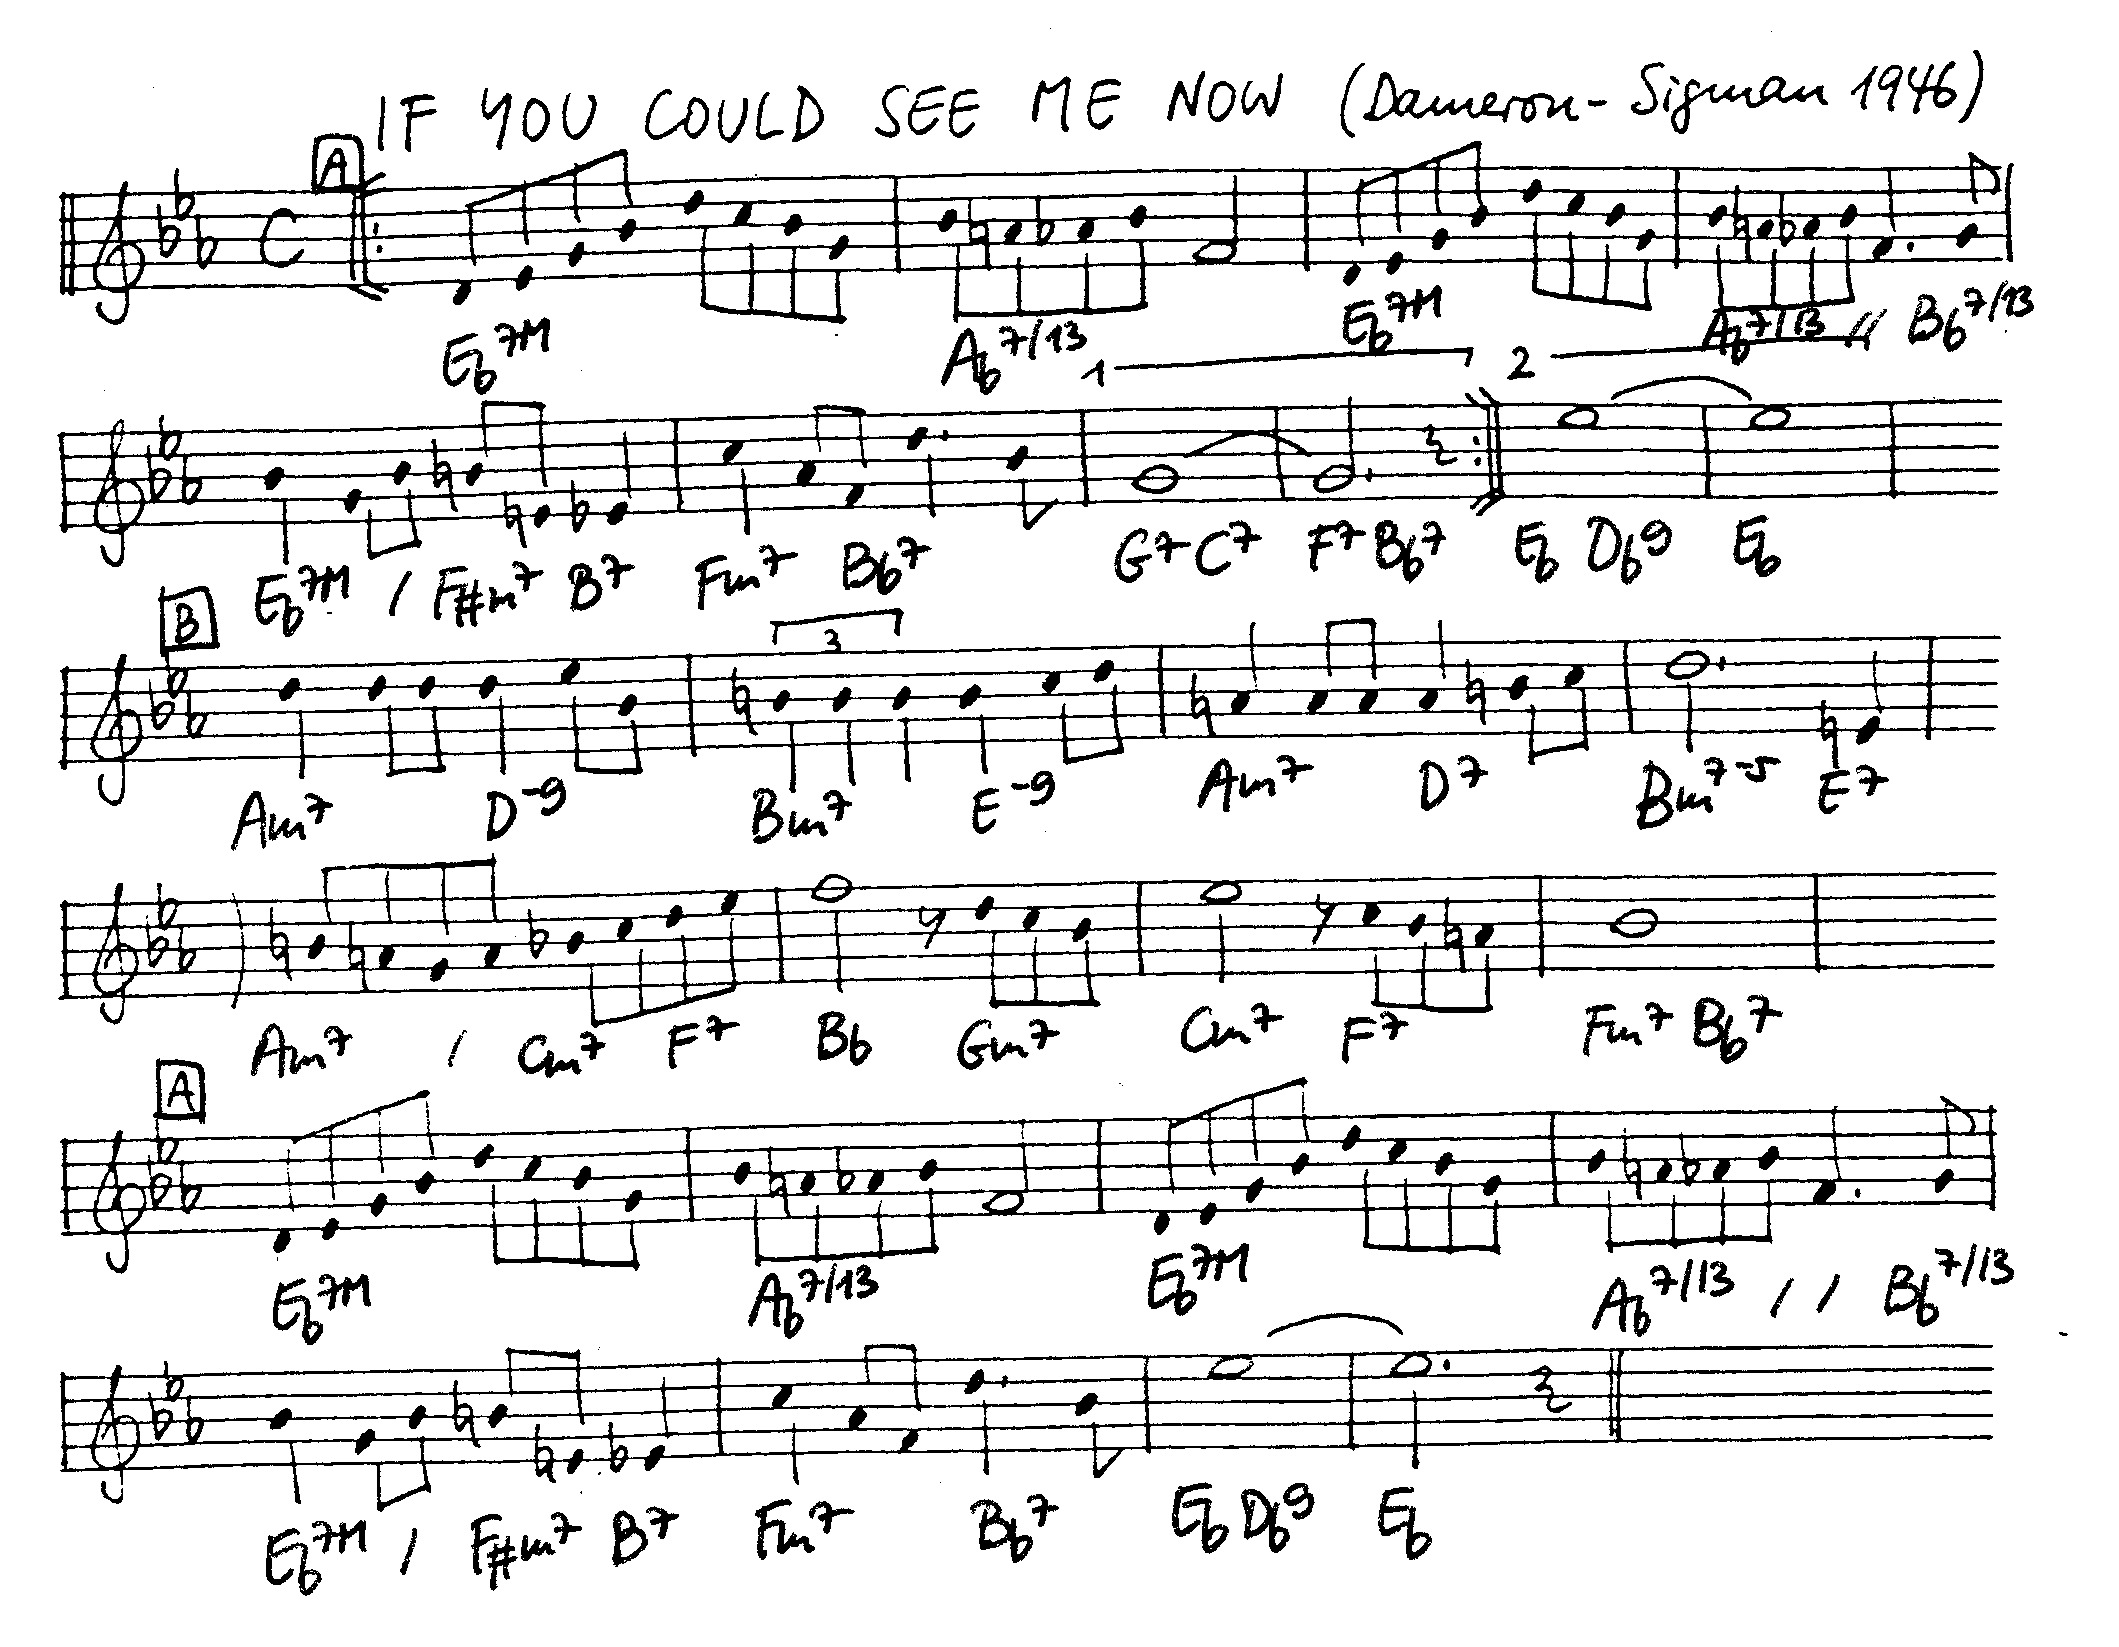 IF YOU COULD SEE ME NOW (Dameron - Sigman 1946)
A
C
Eb7M Ab7/13 Eb7M Ab7/13 // Bb7/13
1 2
Eb7M / F#m7 B7 Fm7 Bb7 G7 C7 F7 Bb7 Eb Db9 Eb
B
3
Am7 D-9 Bm7 E-9 Am7 D7 Bm7-5 E7
Am7 / Cm7 F7 Bb Gm7 Cm7 F7 Fm7 Bb7
A
Eb7M Ab7/13 Eb7M Ab7/13 / / Bb7/13
Eb7M / F#m7 B7 Fm7 Bb7 Eb Db9 Eb